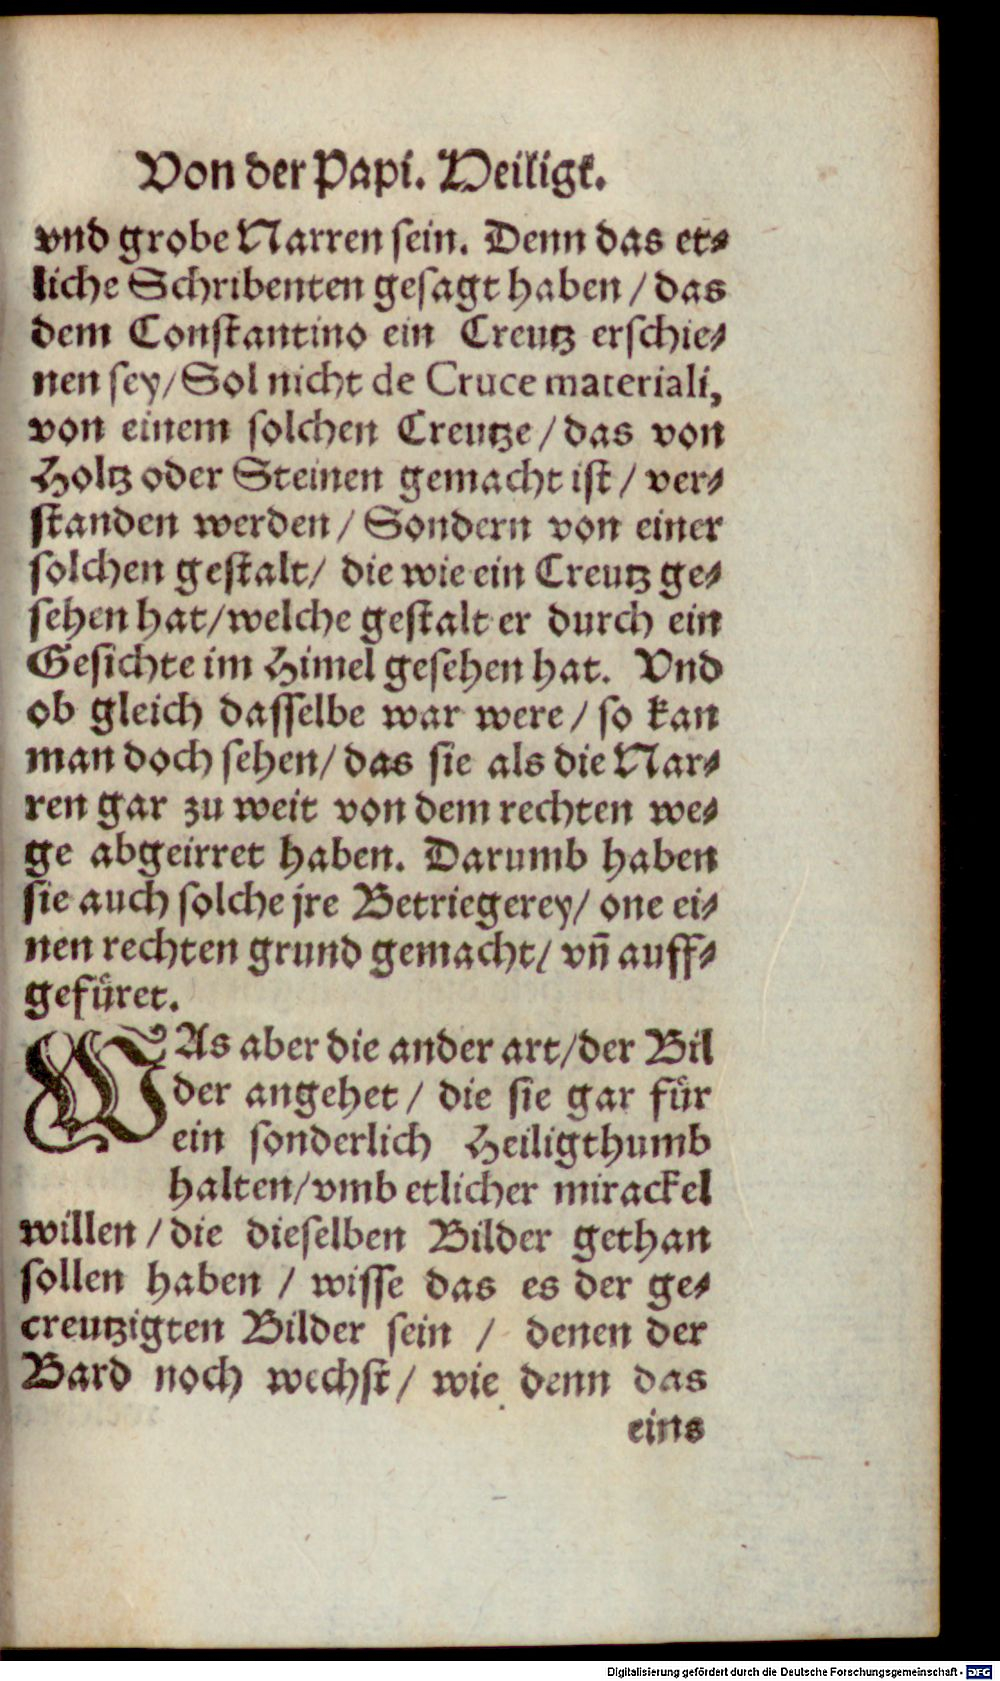 Von der Papi. Heiligk.
vnd grobe Narren sein. Denn das et⸗
liche Schribenten gesagt haben / das
dem Constantino ein Creutz erschie⸗
nen sey / Sol nicht de Cruce materiali,
von einem solchen Creutze / das von
Holtz oder Steinen gemacht ist / ver⸗
standen werden / Sondern von einer
solchen gestalt / die wie ein Creutz ge⸗
sehen hat / welche gestalt er durch ein
Gesichte im Himel gesehen hat. Vnd
ob gleich dasselbe war were / so kan
man doch sehen / das sie als die Nar⸗
ren gar zu weit von dem rechten we⸗
ge abgeirret haben. Darumb haben
sie auch solche jre Betriegerey / one ei⸗
nen rechten grund gemacht / vñ auff⸗
gefüret.
WAs aber die ander art / der Bil
der angehet / die sie gar für
ein sonderlich Heiligthumb
halten / vmb etlicher mirackel
willen / die dieselben Bilder gethan
sollen haben / wisse das es der ge⸗
creutzigten Bilder sein / denen der
Bard noch wechst / wie denn das
eins
Digitalisierung gefördert durch die Deutsche Forschungsgemeinschaft - DFG